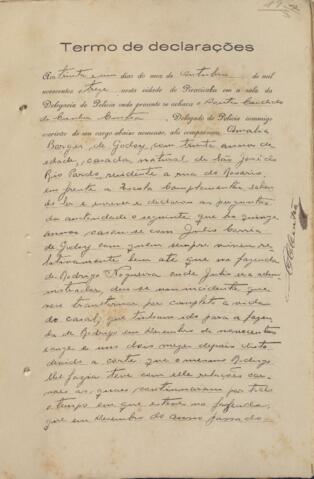 Termo de declarações
Aos trinta e um dias do mez de Outubro de mil
novecentos e treze nesta cidade de Piracicaba em a sala da
Delegacia de Policia onde presente se achava o Doutor Candido
da Cunha Cintra, Delegado de Policia commigo
escrivão de seu cargo abaixo nomeado, ahi compareceu Amalia
Borges de Godoy, com trinta annos de
edade, casada, natural de São José do
Rio Pardo, residente a rua do Rosario,
em frente a Escola Complementar, saben
do ler e escrever e declarou as perguntas
da autoridade o seguinte que ha quinze
annos casou-se com Julio Correa
de Godoy com quem sempre viveu re
lativamente bem até que na fazenda
de Rodrigo Nogueira onde Julio era admi
nistrador, deu-se um incidente que
veio transtornar por completo a vida
do casal; que tinham ido para a fazen
da de Rodrigo em Dezembro de novecentos
e onze e uns dois mezes depois disto
devido a corte que o mesmo Rodrigo
lhe fazia teve com elle relações car
naes as quaes continuaram por todo
o tempo em que esteve na fazenda;
que em Dezembro do anno passado